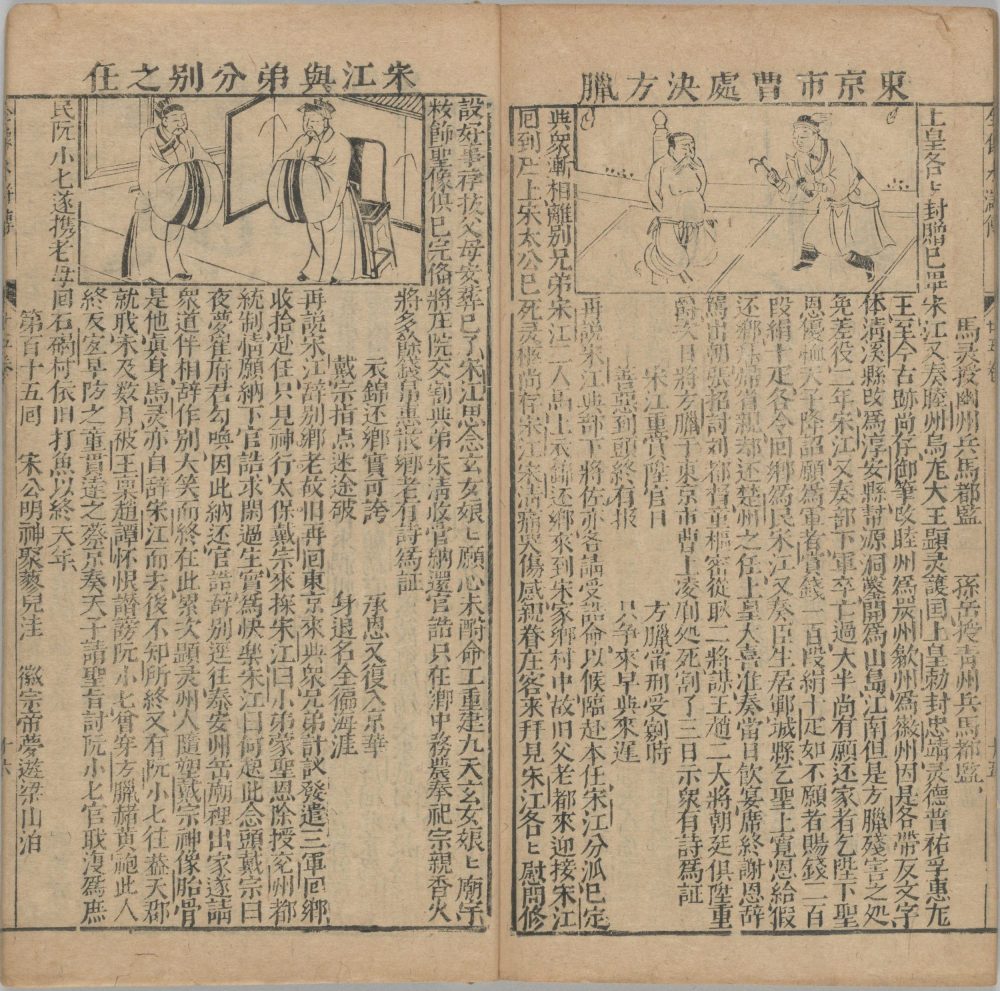 東京市曹處決方臘
馬灵授幽州兵馬都監 孫岳授青州兵馬都監
上皇各〻封贈已畢宋江又奏睦州烏龙大王顯灵護国上皇勅封忠靖灵德普祐孚惠龙
王至今古跡尚存御筆改睦州爲嚴州歙州爲徽州因是各帶反文字
体清溪縣改爲淳安縣幇源洞鑿開爲山島江南但是方臘残害之処
免差役二年宋江又奏部下軍卒亡過大半尚有願还家者乞陛下聖
恩優恤天子降詔願爲軍者賞錢一百段絹十疋如不願者賜錢二百
段絹十疋各令回鄉爲民宋江又奏臣生居鄆城縣乞聖上寛恩給假
还鄉拜掃省親却还楚州之任上皇大喜准奏當日飲宴席終謝恩辞
駕出朝張招討刘都督童樞密從耿二將譚王趙二大將朝廷俱陞重
爵次日將方臘于東京市曹上凌剮処死割了三日示眾有詩爲証
宋江重賞陞官日 方臘當刑受剮時
善惡到頭終有报 只争來早與來遲
再説宋江與部下將佐亦各請受誥命以候臨赴本任宋江分派已定
與眾漸相離别兄弟宋江二人馬上衣錦还鄉來到宋家鄉村中故旧父老都來迎接宋江
回到庄上宋太公已死灵柩尚存宋江宋清痛哭傷感親眷庄客來拜見宋江各〻慰問修
宋江與弟分别之任
設好事存扶父母安葬已了宋江思念玄女娘〻願心未酧命工重建九天玄女娘〻廟宇
粧飾聖像俱已完俻將庄院交割與弟宋清收官納還官誥只在鄉中務農奉祀宗親香火
將多餘錢帛惠散鄉老有詩爲証
衣錦还鄉實可誇 承恩又復入京華
戴宗指点迷途破 身退名全徧海涯
再説宋江辞别鄉老故旧再回東京來與眾兄弟計議發遣三軍回鄉
收拾赴任只見神行太保戴宗來探宋江曰小弟蒙聖恩除授兗州都
統制情願納下官誥求閑過生實爲快樂宋江曰何起此念頭戴宗曰
夜夢崔府君勾喚因此納还官誥辞别逕往泰安州岳廟裡出家遂請
眾道伴相辞作别大笑而終在此累次顯灵州人隨塑戴宗神像胎骨
是他真身馬灵亦自辞宋江而去後不知所終又有阮小七往葢天郡
就职未及数月被王禀趙譚怀恨譖謗阮小七曾穿方臘赭黄袍此人
終反宜早防之童貫達之蔡京奏天子請聖旨討阮小七官职復爲庶
民阮小七遂携老母回石碣村依旧打魚以終天年
第百十五回 宋公明神聚蓼兒洼 徽宗帝夢遊梁山泊